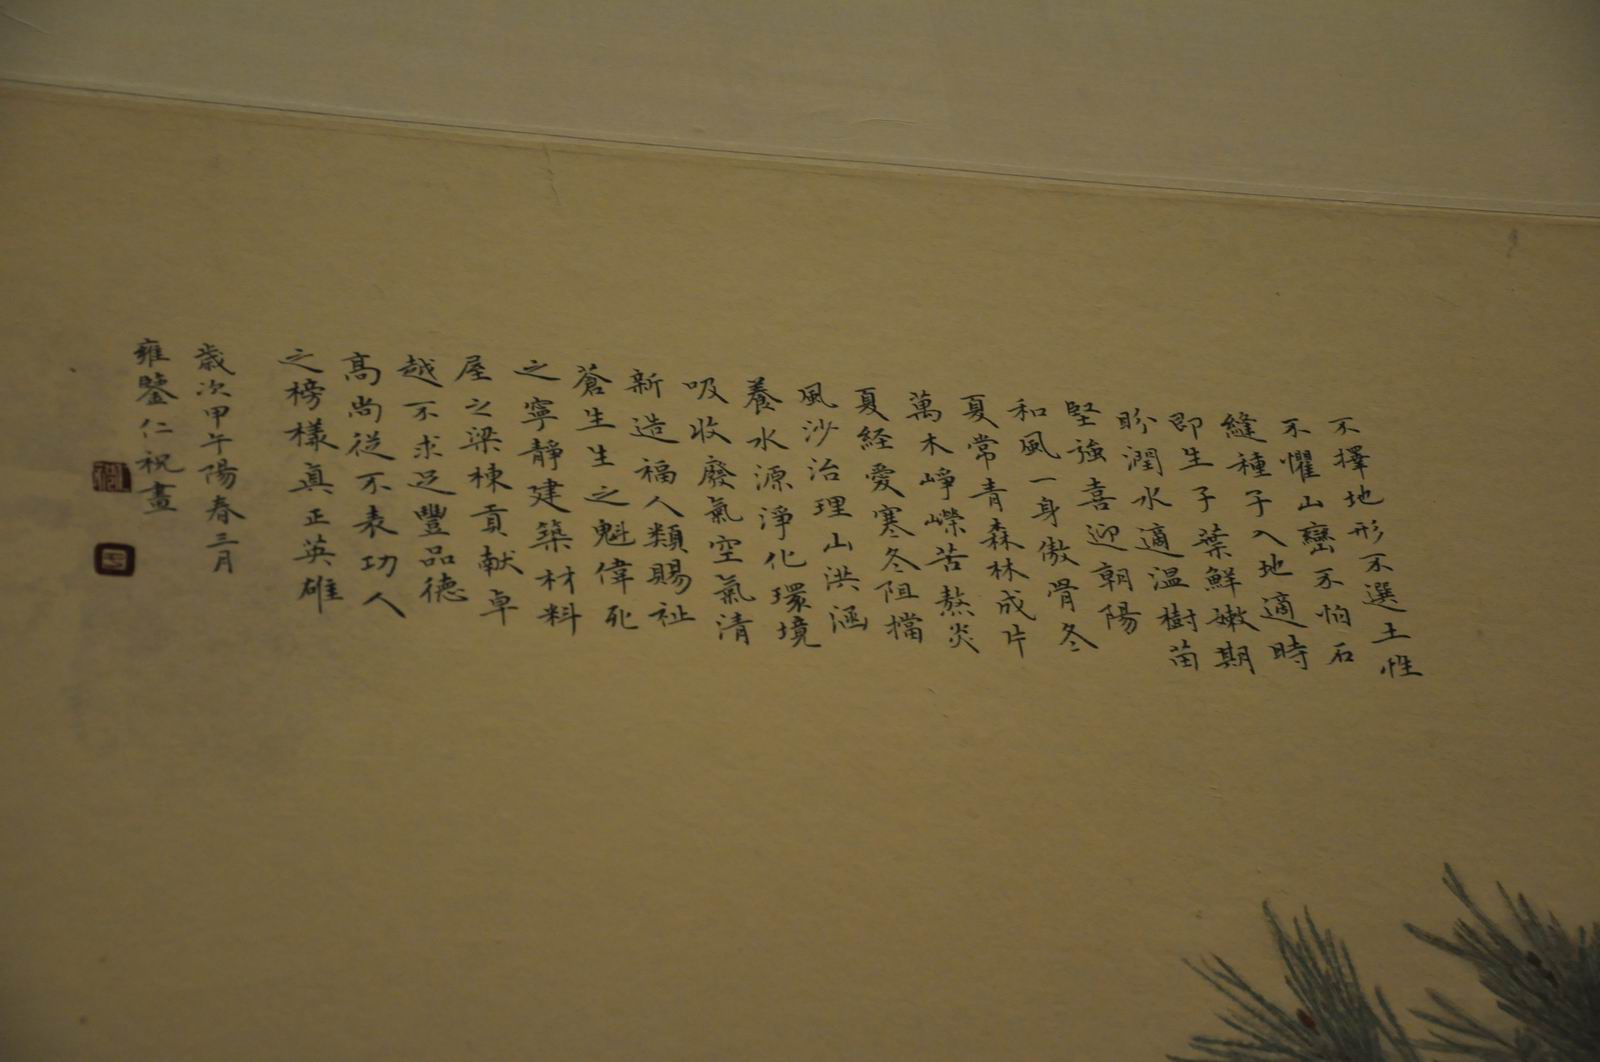 不擇地形不選土性
不懼山巒不怕石
縫種子入地適時
即生子葉鮮嫩期
盼潤水適溫樹苗
堅強喜迎朝陽
和風一身傲骨冬
夏常青森林成片
萬木崢嶸苦熬炎
夏経愛寒冬阻擋
風沙治理山洪涵
養水源淨化環境
吸收廢氣空氣清
新造福人類賜祉
蒼生生之魁偉死
之寧靜建築材料
屋之梁棟貢献卓
越不求足豐品德
高尚從不表功人
之榜樣真正英雄
歲次甲午陽春三月
雍鑒仁祝畫